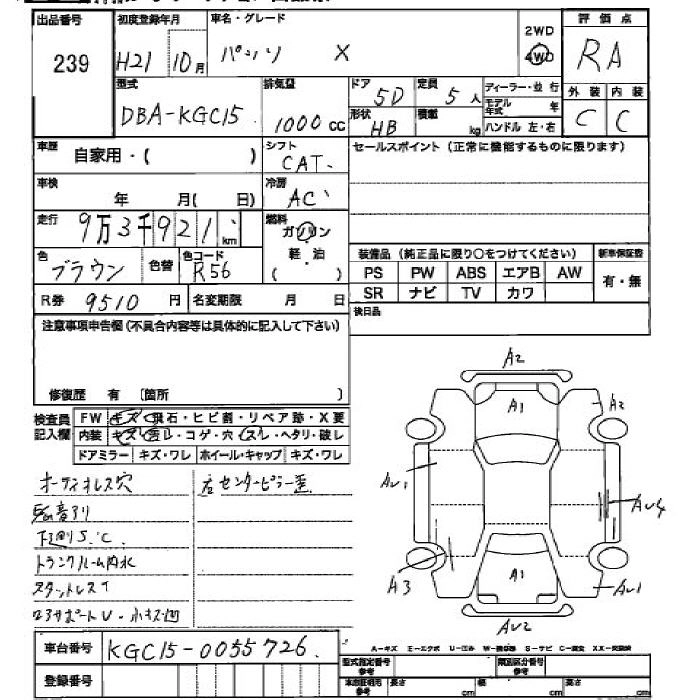 出品番号 初度登録年月 車名・グレード 2WD 評価点
239 H21 10月 パッソ X 4WD RA
型式 排気量 ドア 定員 ディーラー・並行 外装 内装
DBA-KGC15 1000cc 5D 5人 モデル年式 年 C C
形状 HB 積載 kg ハンドル 左・右
車歴 自家用・( ) シフト CAT. セールスポイント(正常に機能するものに限ります)
車検 年 月( 日) 冷房 AC
走行 9万3千921km 燃料 ガソリン
軽・油
( )
色 ブラウン 色替 色コード R56
装備品(純正品に限り○をつけてください) 新車保証書
PS PW ABS エアB AW 有・無
SR ナビ TV カワ
R券 9510円 名変期限 月 日 後日品
注意事項申告欄(不具合内容等は具体的に記入して下さい)
修復歴 有 〔箇所 〕
検査員記入欄 FW キズ・飛石・ヒビ割・リペア跡・X要
内装 キズ・汚レ・コゲ・穴・スレ・ヘタリ・破レ
ドアミラー キズ・ワレ ホイール・キャップ キズ・ワレ
オーディオレス穴 右センターピラー歪
下廻りS、C
トランクルーム内水
スタットレス
A2
A1
A2
AU1
AU4
A3
A1
AU1
AU2
車台番号 KGC15-0055726
登録番号
A-キズ E-エクボ U-凹み S-サビ C-腐食
型式指定番号 参考 類別区分番号 参考
長さ cm 幅 cm 高さ cm